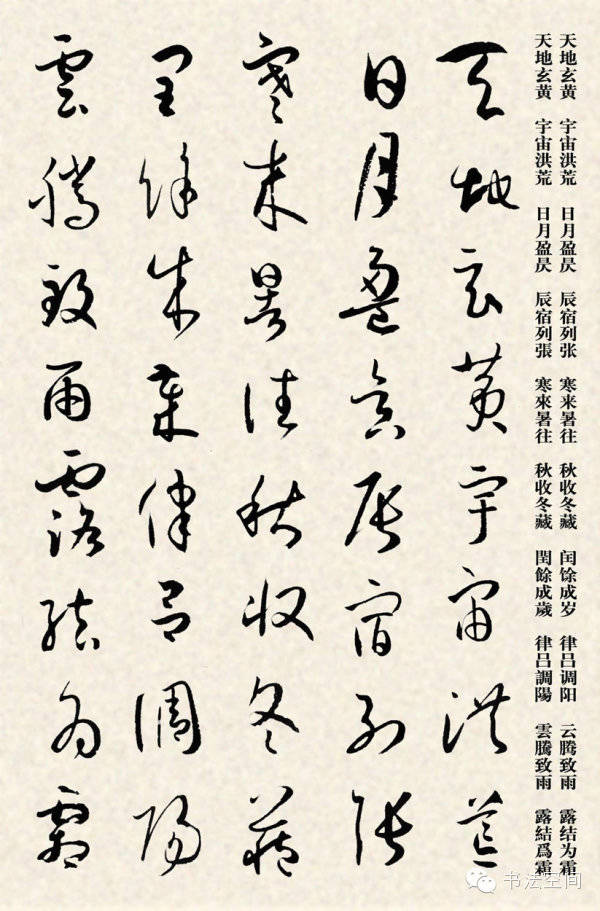 天地玄黄 宇宙洪荒 日月盈昃 辰宿列张 寒来暑往 秋收冬藏 闰馀成岁 律吕调阳 云腾致雨 露结为霜
天地玄黄 宇宙洪荒 日月盈昃 辰宿列張 寒來暑往 秋收冬藏 閏餘成歲 律呂調陽 雲騰致雨 露結爲霜
天地玄黄宇宙洪荒
日月盈昃辰宿列張
寒来暑往秋收冬藏
閏餘成歲律吕調陽
雲騰致雨露結為霜
书法空间